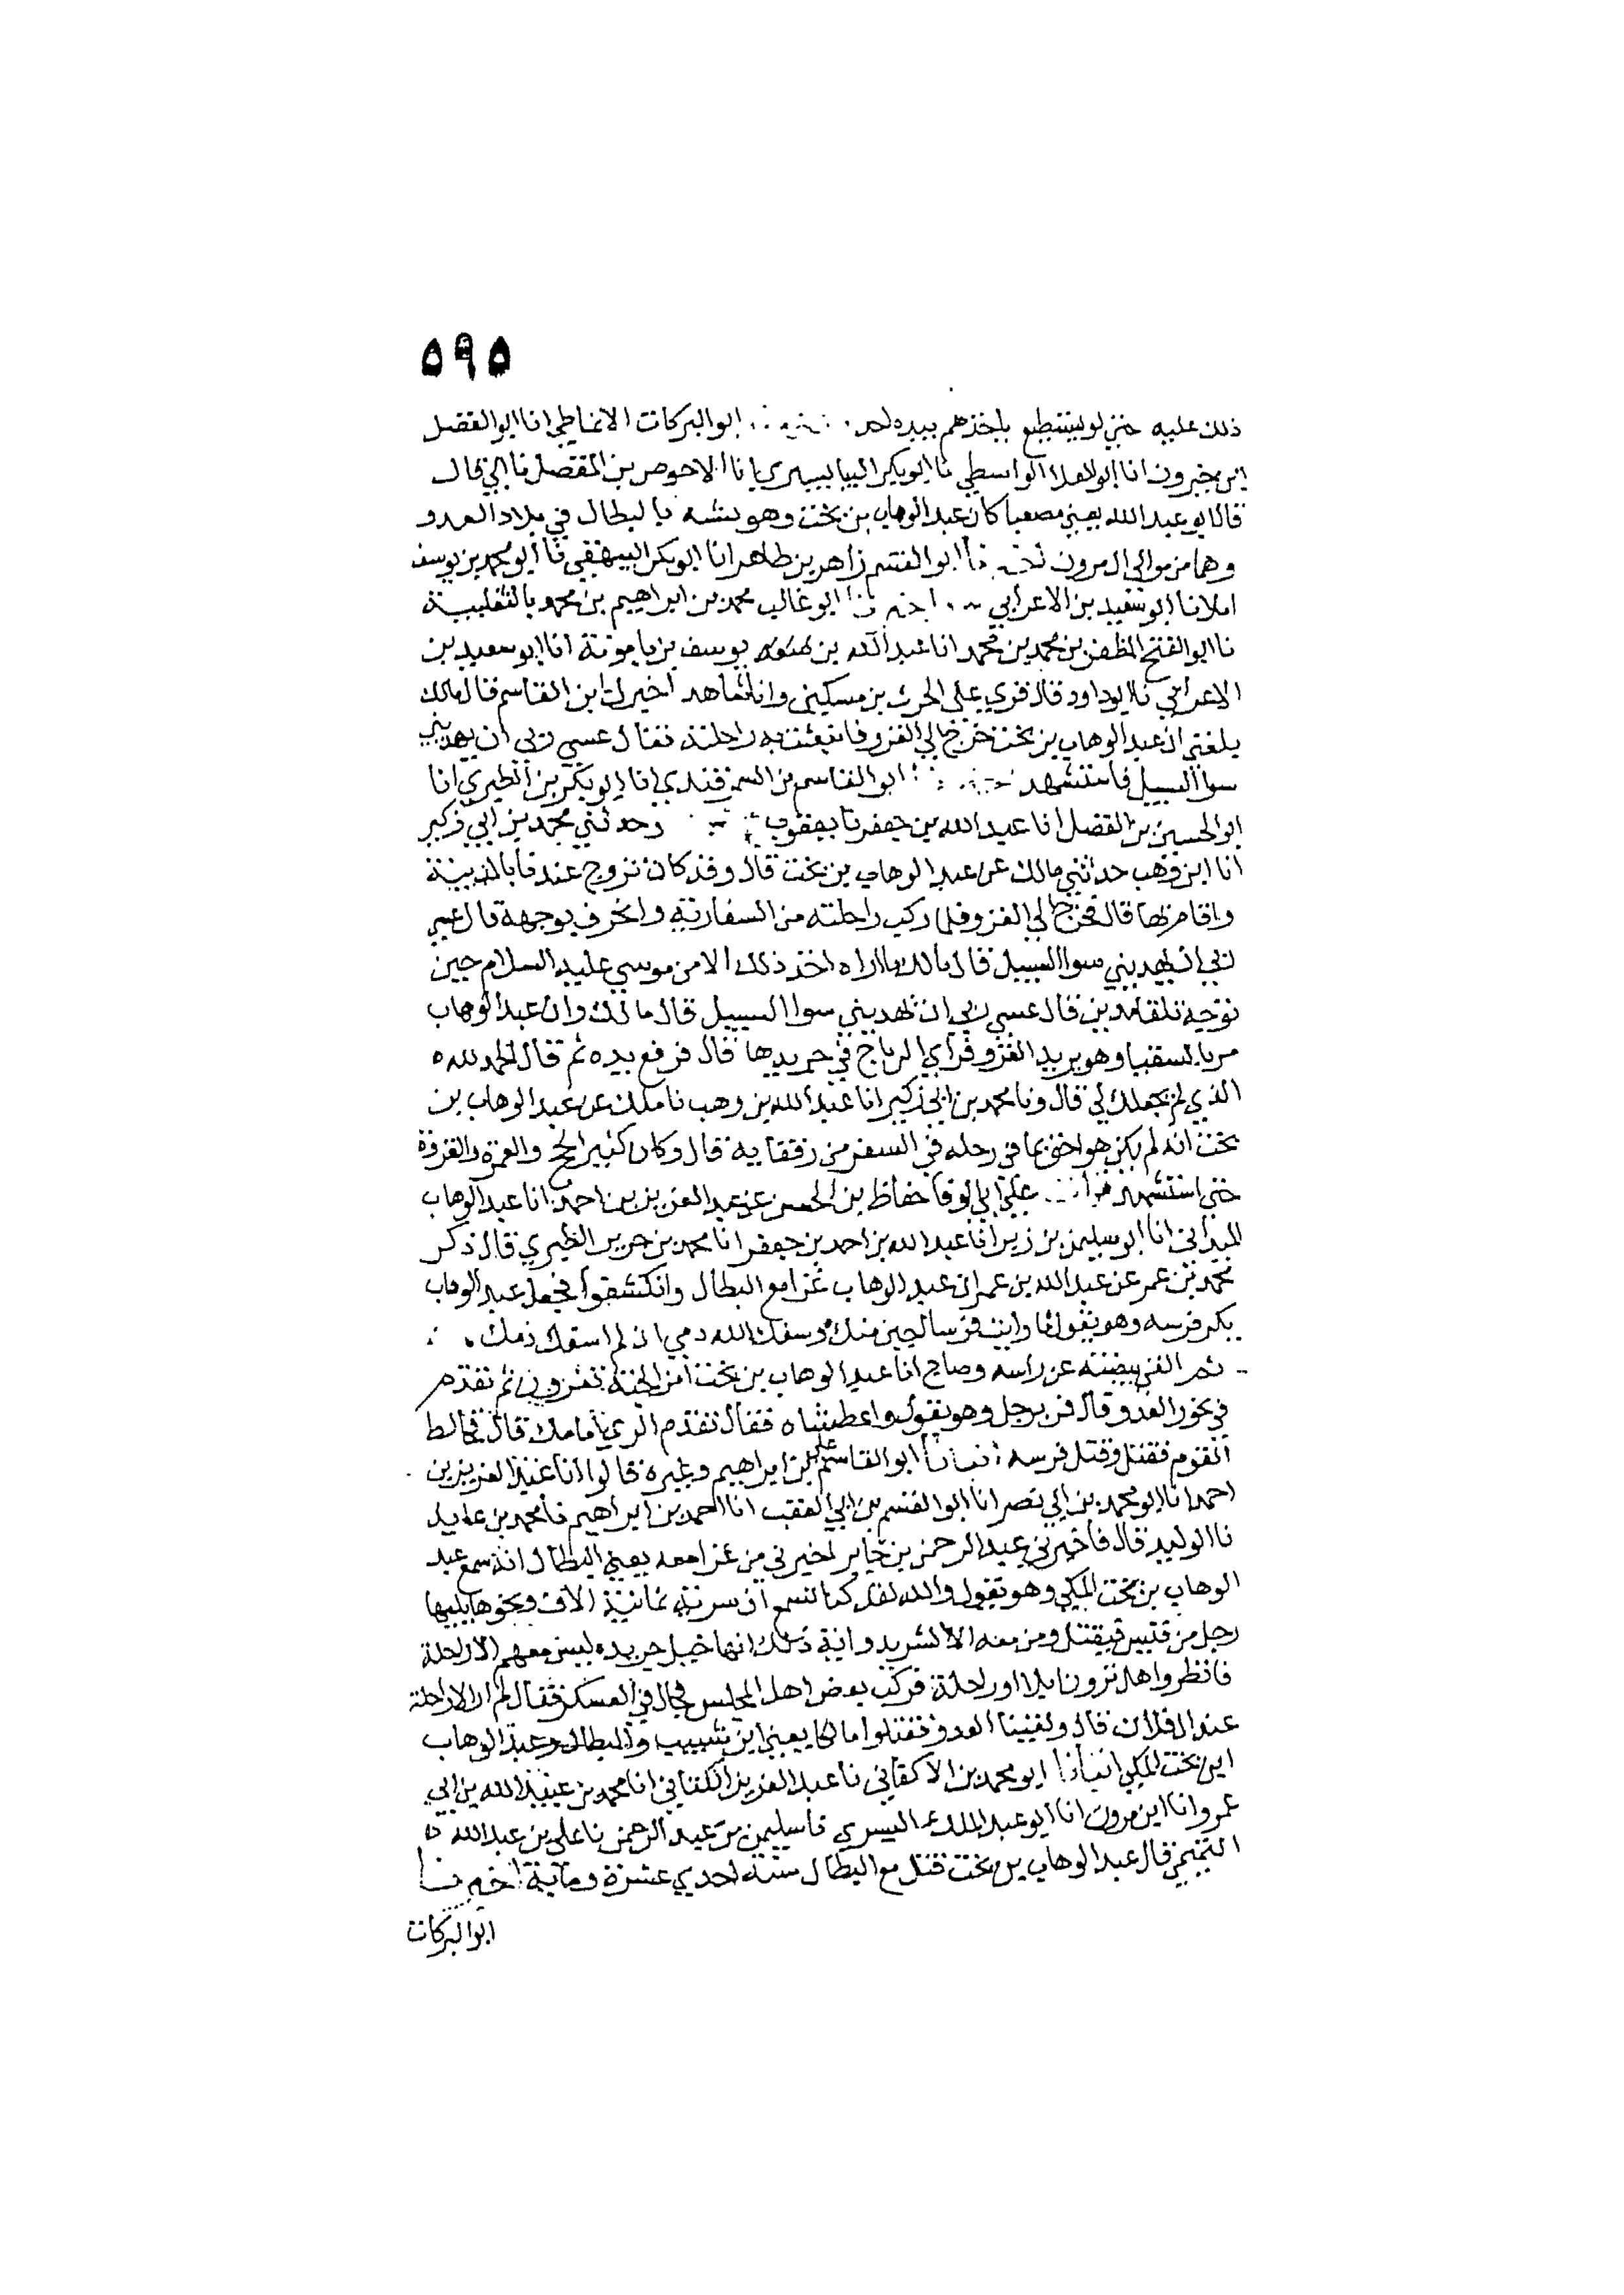 ٥٩٥
ذلك عليه حتي لو يستطيع ياخذهم بيده لحد ابو البركات الانماطي انا ابو الفضل
ابن خيرون انا ابو العلا الواسطي نا ابو بكر البابسيري انا الاحوص بن المفضل نا ابي قال
قال ابو عبد الله يعني مصعبا كان عبد الوهاب بن بخت وهو بالبطال في بلاد العدو
وهما من موالي ال مرون ابو القسم زاهر بن طاهر انا ابو بكر البيهقي نا ابو محمد بن يوسف
املانا ابو سعيد بن الاعرابي ابو غالب محمد بن ابراهيم بن محمد بالثعلبية
نا ابو الفتح المظفر بن محمد بن محمد انا عبد الله بن يوسف بن بامونة انا ابو سعيد بن
الاعرابي نا ابو داود قال قري علي الحرث بن مسكين وانا شاهد اخبرك ابن القاسم قال مالك
بلغني ان عبد الوهاب بن بخت خرج الي الغزو فانبعثت به راحلته فقال عسي ربي ان يهديني
سوا السبيل فاستشهد ابو القاسم بن السمرقندي انا ابو بكر بن الطبري انا
ابو الحسين بن الفضل انا عبد الله بن جعفر نا يعقوب وحدثني محمد بن ابي زكير
انا ابن وهب حدثني مالك عن عبد الوهاب بن بخت قال وقد كان تزوج عندنا بالمدينة
واقام بها قال فخرج الي الغزو فلما ركب راحلته من السفارته وانحرف بوجهه قال عسي
ربي ان يهديني سوا السبيل قال مالك ما اراه اخذ ذلك الا من موسي عليه السلام حين
توجه تلقا مدين قال عسي ربي ان يهديني سوا السبيل قال مالك وان عبد الوهاب
مر بالسقيا وهو يريد الغزو فراي الرياح في جريدها قال فرفع يده ثم قال الحمد لله ه
الذي لم يجعلك لي قال ونا محمد بن ابي زكير انا عبد الله بن وهب نا ملك عن عبد الوهاب بن
بخت انه لم يكن هو احق بما في رحله في السفر من رفقايه قال وكان كثير الحج والعمرة والغزوة
حتي استشهد علي ابي الوفا حفاظ بن الحسن عن عبد العزيز بن احمد انا عبد الوهاب
الميداني انا ابو سليمن بن زبر انا عبد الله بن احمد بن جعفر انا محمد بن جرير الطبري قال ذكر
محمد بن عمر عن عبد الله بن عمر ان عبد الوهاب غزا مع البطال وانكشفوا فجعل عبد الوهاب
يكر فرسه وهو يقول ما رايت فرسا اجبن منك وسفك الله دمي ان لم اسفك دمك
ثم القي بيضته عن راسه وصاح انا عبد الوهاب بن بخت امن الجنة تفرون ثم تقدم
في نحور العدو قال فمر برجل وهو يقول واعطشاه فقال تقدم الري امامك قال فخالط
القوم فقتل وقتل فرسه انبانا ابو القاسم علي بن ابراهيم وغيره قالوا انا عبد العزيز بن
احمد انا ابو محمد بن ابي نصر انا ابو القسم بن ابي العقب انا احمد بن ابراهيم نا محمد بن عايد
نا الوليد قال فاخبرني عبد الرحمن بن جابر اخبرني من غزا معه يعني البطال انه سمع عبد
الوهاب بن بخت المكي وهو يقول والله لقد كنا نسمع ان سرية ثمانية الاف ونحوها يليها
رجل من قيس فيقتل ومن معه الا الشريد واية ذلك انها خيل جريده ليس معهم الا راحلة
فانظروا هل ترون ابلا او راحلة فركب بعض اهل المجلس فجال في العسكر فقال لم ار الا راحلة
عند ال فلان قال ولقينا العدو فقتلوا مالكا يعني ابن شبيب والبطال وعبد الوهاب
ابن بخت المكي انبانا ابو محمد بن الاكفاني نا عبد العزيز الكتاني انا محمد بن عبيد الله بن ابي
عمرو انا ابن مرون انا ابو عبد الملك البسري نا سليمن بن عبد الرحمن نا علي بن عبد الله
التميمي قال عبد الوهاب بن بخت قتل مع البطال سنة احدي عشرة وماية اخبرنا
ابو البركات